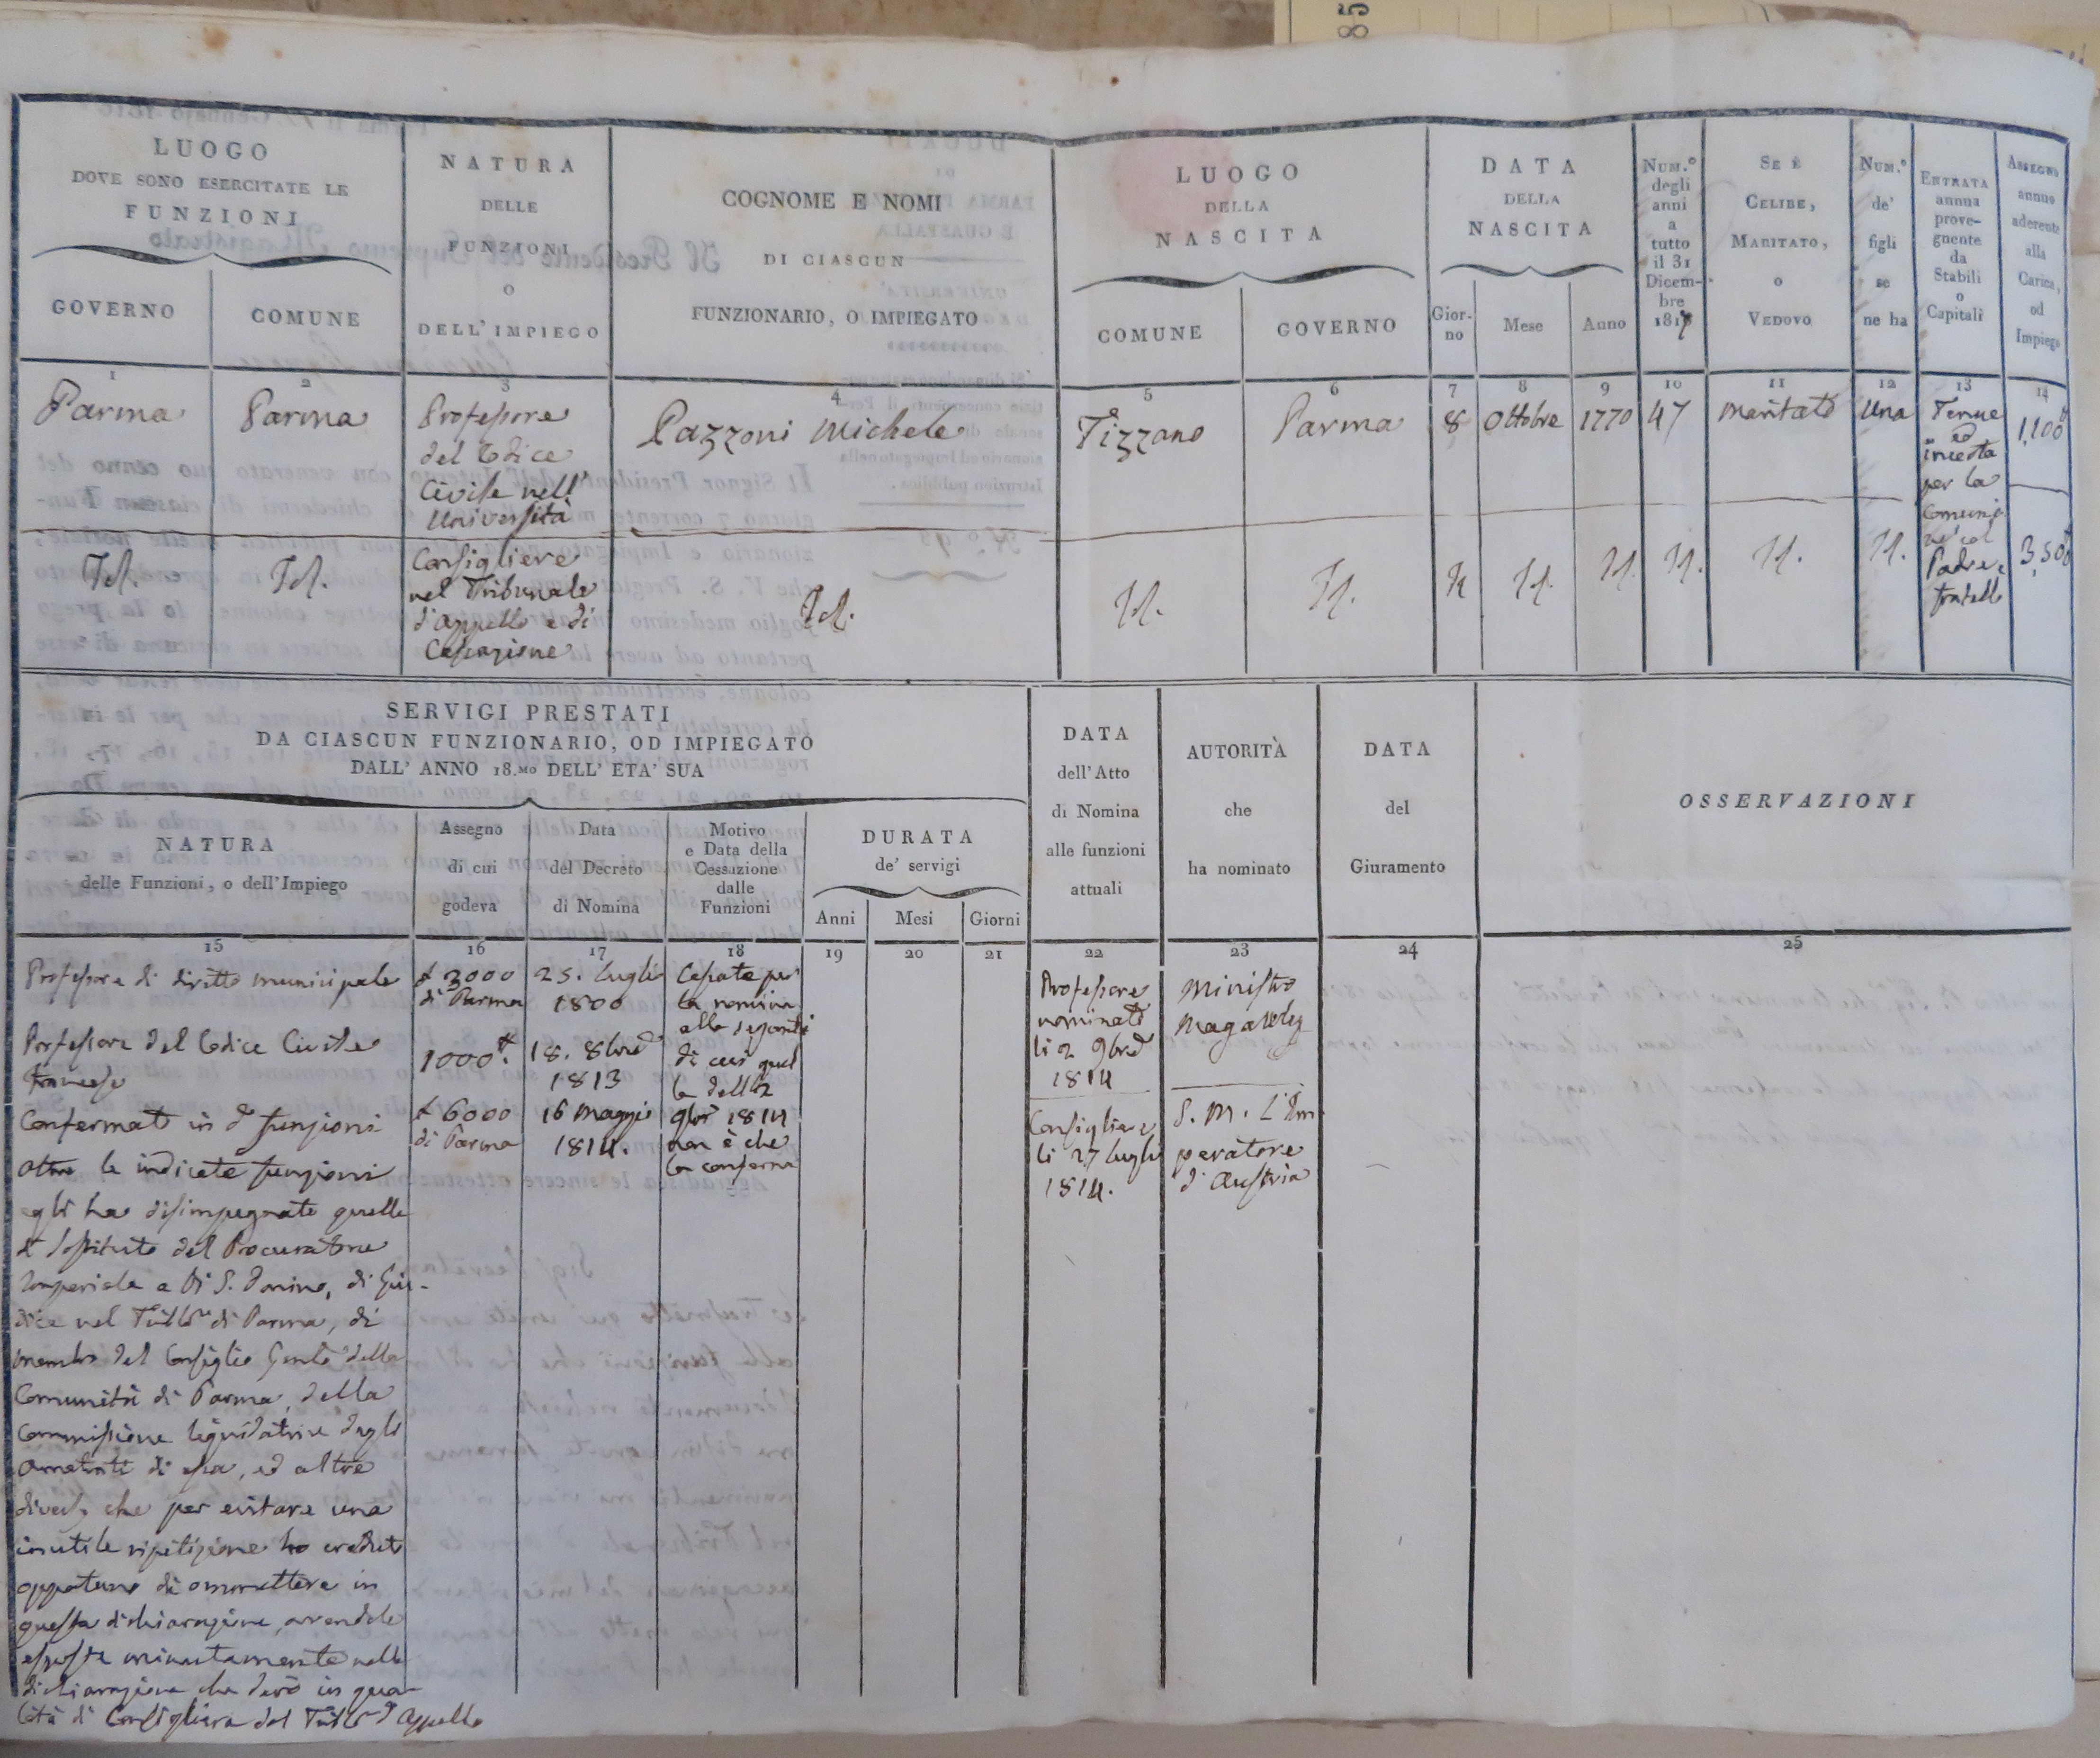 85
LUOGO
DOVE SONO ESERCITATE LE
FUNZIONI
GOVERNO
COMUNE
NATURA
DELLE
FUNZIONI
O
DELL'IMPIEGO
COGNOME E NOMI
DI CIASCUN
FUNZIONARIO, O IMPIEGATO
LUOGO
DELLA
NASCITA
COMUNE
GOVERNO
DATA
DELLA
NASCITA
Gior-
no
Mese
Anno
NUM.º
degli
anni
a
tutto
il 31
Dicem-
bre
1817
SE È
CELIBE,
MARITATO,
O
VEDOVO
NUM.º
de'
figli
se
ne ha
ENTRATA
annua
prove-
gnente
da
Stabili
o
Capitali
ASSEGNO
annuo
aderente
alla
Carica,
od
Impiego
1
2
3
4
5
6
7
8
9
10
11
12
13
14
Parma
Parma
Professore
del Codice
Civile nell'
Università
Pazzoni Michele
Tizzano
Parma
8
Ottobre
1770
47
Maritato
Una
Tenue
ed
incerta
per la
Comuni
col
Padre e
fratello
1,100
Id.
Id.
Consigliere
nel Tribunale
d'appello e di
Cassazione
Id.
Id.
Id.
Id.
Id.
Id.
Id.
Id.
Id.
3,500
SERVIGI PRESTATI
DA CIASCUN FUNZIONARIO, OD IMPIEGATO
DALL' ANNO 18.MO DELL' ETA' SUA
NATURA
delle Funzioni, o dell'Impiego
Assegno
di cui
godeva
Data
del Decreto
di Nomina
Motivo
e Data della
Cessazione
dalle
Funzioni
DURATA
de' servigi
Anni
Mesi
Giorni
DATA
dell'Atto
di Nomina
alle funzioni
attuali
AUTORITÀ
che
ha nominato
DATA
del
Giuramento
OSSERVAZIONI
15
16
17
18
19
20
21
22
23
24
25
Professore di diritto municipale
Professore del Codice Civile
francese
Confermato in d.e funzioni
Oltre le indicate funzioni
egli ha disimpegnate quelle
di Sostituto del Procuratore
Imperiale a B.º S. Donino, di Giu-
dice nel Trib.le di Parma, di
membro del Consiglio Gen.le della
Comunità di Parma, della
Commissione liquidatrice degli
arretrati di essa, ed altre
diverse che per evitare una
inutile ripetizione ho creduto
opportuno di ommettere in
questa dichiarazione, avendole
esposte minutamente nella
dichiarazione che darò in qua-
lità di Consigliere del Trib.le d'Appello
£ 3000
di Parma
1000 £.
£ 6000
di Parma
25. Luglio
1800
18. 8bre
1813
16 Maggio
1814.
Cessate per
la nomina
alle seguenti
di cui quel
la della
9bre 1814
non è che
la conferma
Professore
nominato
li 2 9bre
1814
Consigliere
li 27 luglio
1814.
Ministro
Magawly
S. M. L'Im
peratore
d'Austria